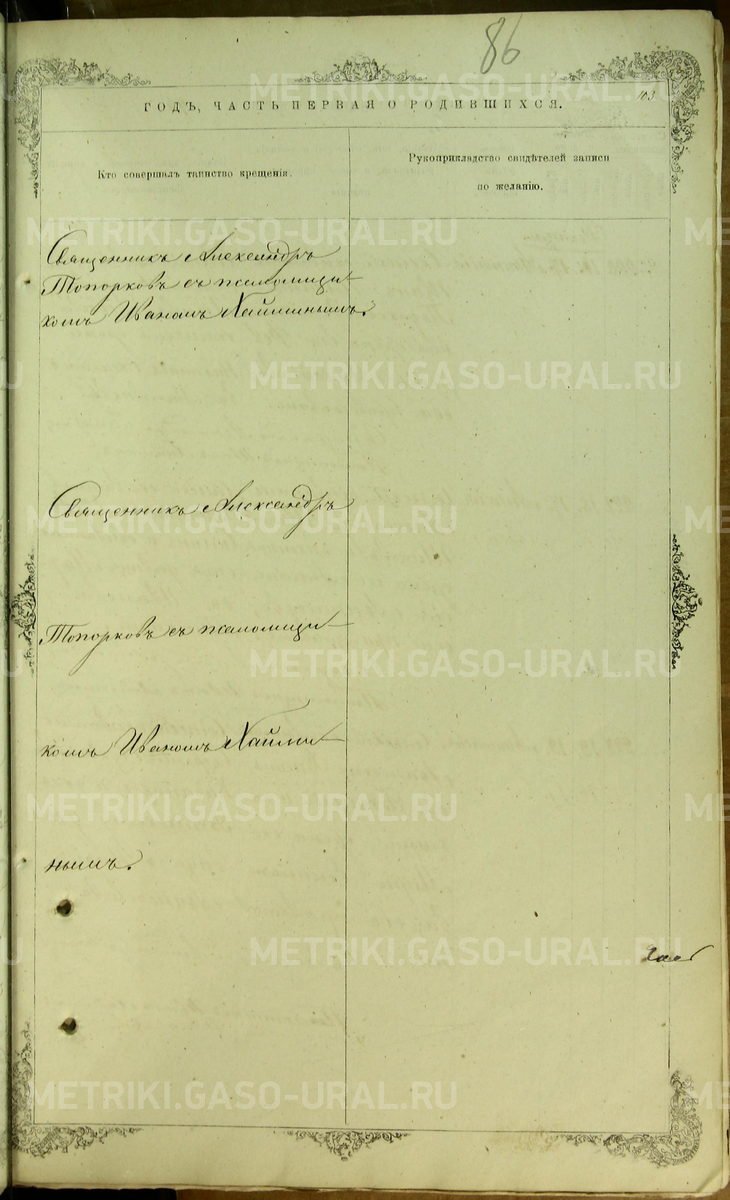 86
103
ГОДЪ, ЧАСТЬ ПЕРВАЯ О РОДИВШИХСЯ.
Кто совершалъ таинство крещенія.
Рукоприкладство свидѣтелей записи
по желанію.
Священникъ Александръ
Топорковъ съ псаломщи-
комъ Иваномъ Хайминымъ.
Священникъ Александръ
Топорковъ съ псаломщи-
комъ Иваномъ Хайми-
нымъ.
METRIKI.GASO-URAL.RU
METRIKI.GASO-URAL.RU
METRIKI.GASO-URAL.RU
METRIKI.GASO-URAL.RU
METRIKI.GASO-URAL.RU
METRIKI.GASO-URAL.RU
METRIKI.GASO-URAL.RU
METRIKI.GASO-URAL.RU